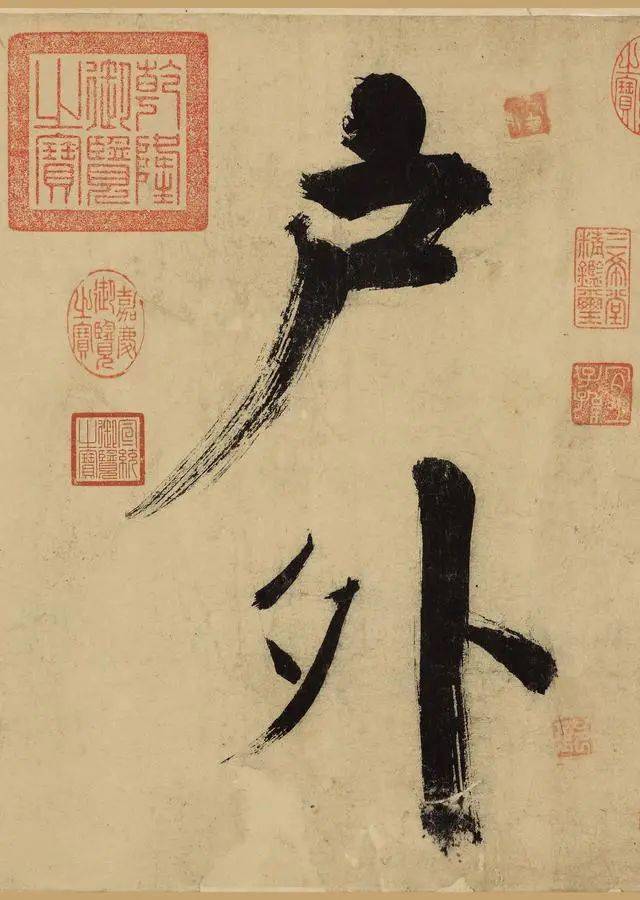 之寶
三希堂
精鑑璽
宜
子孫
户外
乾隆
御覽
之寶
嘉慶
御覽
之寶
宣統
御覽
之寶